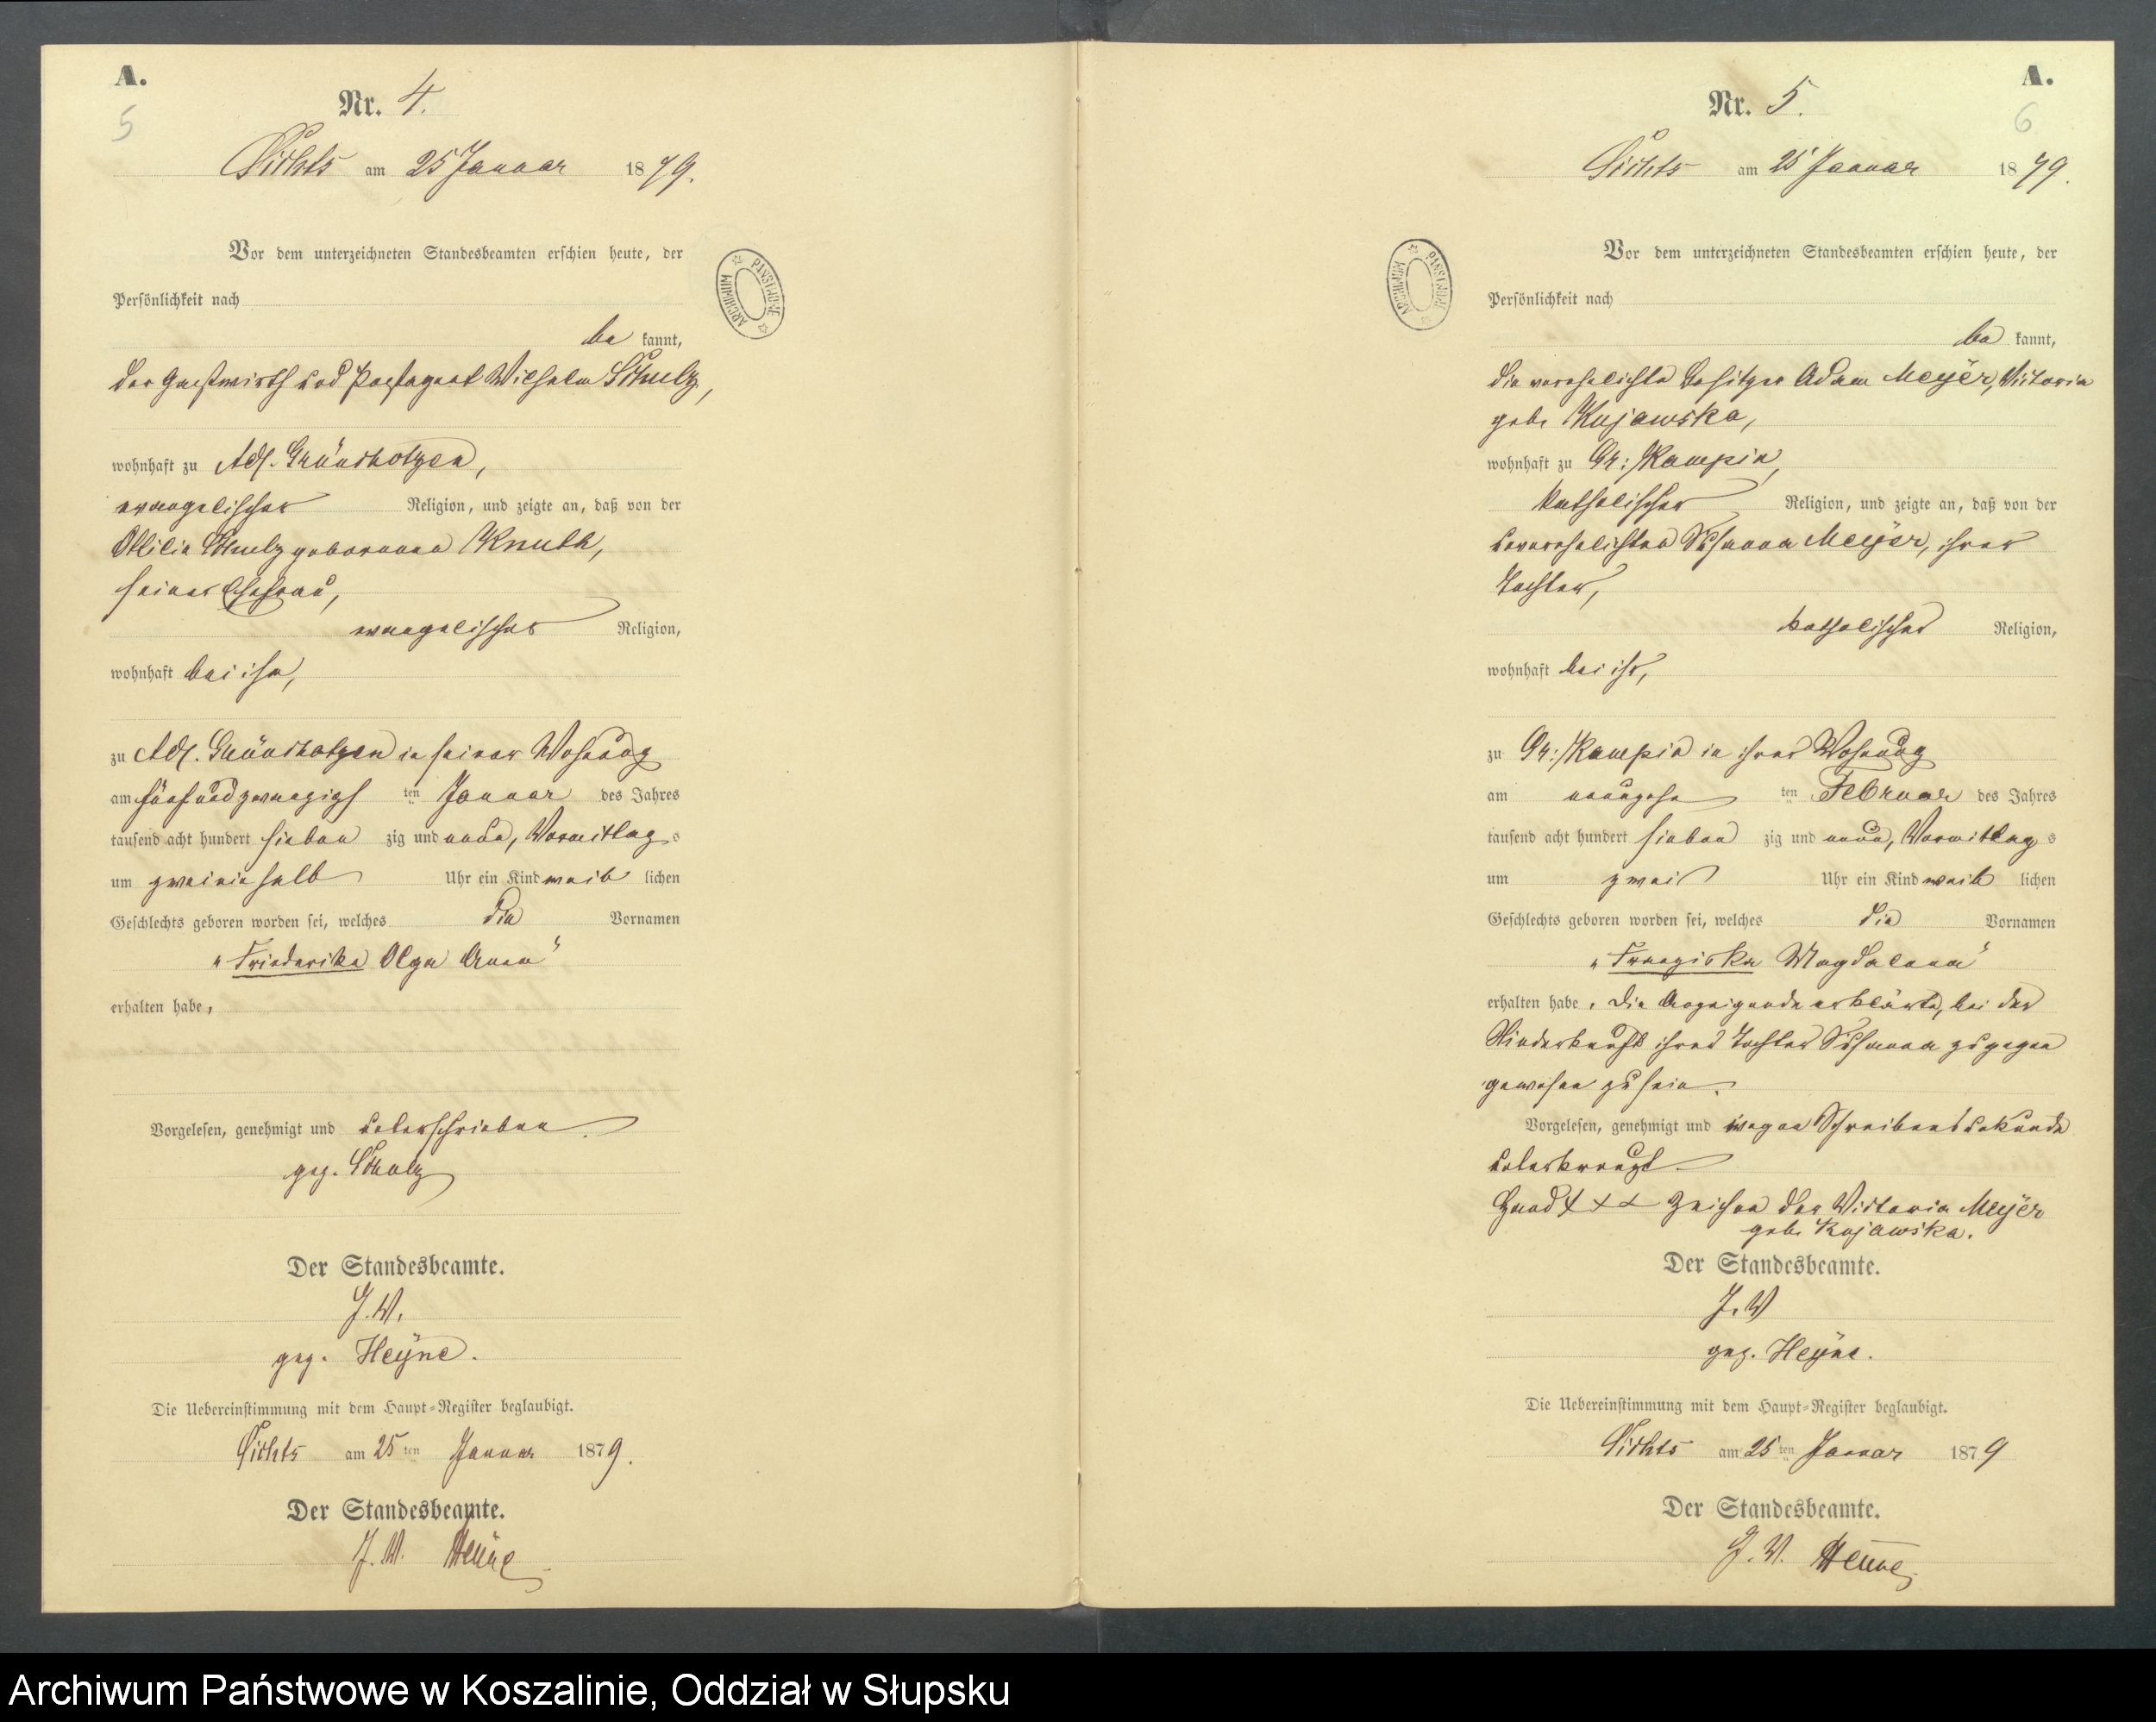 A.
5
Nr. 4.
Lichts am 25 Januar 1879.
Vor dem unterzeichneten Standesbeamten erschien heute, der
Persönlichkeit nach
be kannt,
der Gastwirth und Postagent Wilhelm Schulz,
wohnhaft zu Adl. Grünshotzen,
evangelischer Religion, und zeigte an, daß von der
Ottilie Schulz geborenen Knuth,
seiner Ehefrau,
evangelischer Religion,
wohnhaft bei ihm,
zu Adl. Grünshotzen in seiner Wohnung
am fünfundzwanzigst ten Januar des Jahres
tausend acht hundert sieben zig und neun, Vormittag s
um zweieinhalb Uhr ein Kind weib lichen
Geschlechts geboren worden sei, welches die Vornamen
„Friederike Olga Anna"
erhalten habe,
Vorgelesen, genehmigt und unterschrieben.
gez. Schulz
Der Standesbeamte.
J. V.
gez. Heÿne.
Die Uebereinstimmung mit dem Haupt-Register beglaubigt.
Lichts am 25 ten Januar 1879.
Der Standesbeamte.
J. V. Heÿne
ARCHIWUM PAŃSTWOWE
A.
6
Nr. 5.
Lichts am 25 Januar 1879.
Vor dem unterzeichneten Standesbeamten erschien heute, der
Persönlichkeit nach
be kannt,
die verehelichte Besitzer Adam Meÿer, Victoria
geb. Kujawska,
wohnhaft zu Gr: Kampin,
katholischer Religion, und zeigte an, daß von der
unverehelichten Susanna Meÿer, ihrer
Tochter,
katholischer Religion,
wohnhaft bei ihr,
zu Gr: Kampin in ihrer Wohnung
am neunzehn ten Februar des Jahres
tausend acht hundert sieben zig und neun, Vormittag s
um zwei Uhr ein Kind weib lichen
Geschlechts geboren worden sei, welches die Vornamen
„Franziska Magdalena"
erhalten habe. Die Anzeigende erklärte, bei der
Niederkunft ihrer Tochter Susanna zugegen
gewesen zu sein.
Vorgelesen, genehmigt und wegen Schreibensunkunde
unterkreuzt
Hand + + + Zeichen der Victoria Meÿer
geb. Kujawska.
Der Standesbeamte.
J. V
gez. Heÿne.
Die Uebereinstimmung mit dem Haupt-Register beglaubigt.
Lichts am 25 ten Januar 1879
Der Standesbeamte.
J. V. Heÿne
ARCHIWUM PAŃSTWOWE
Archiwum Państwowe w Koszalinie, Oddział w Słupsku